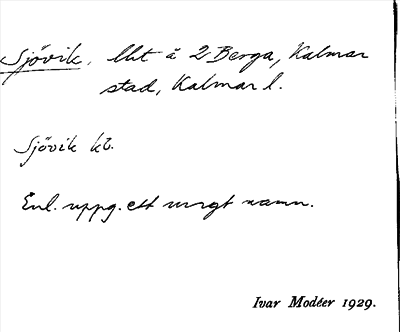 Sjövik, lht å 2 Berga, Kalmar
stad, Kalmar l.
Sjövik kb.
Enl. uppg. ett ungt namn.
Ivar Modéer 1929.